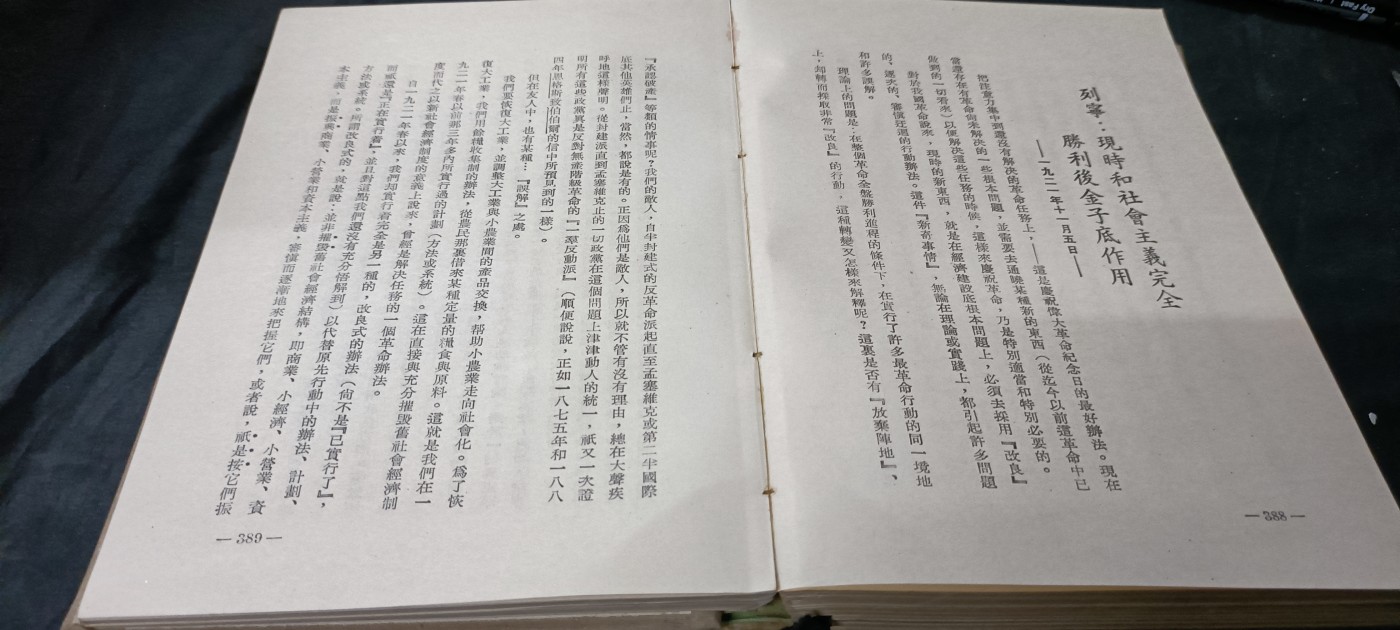 列寧：現時和社會主義完全
勝利後金子底作用
——一九二一年十一月五日——
把注意力集中到還沒有解決的革命任務上，——這是慶祝偉大革命紀念日的最好辦法。現在
當還存在有革命尚未解決的一些根本問題，並需要去通曉某種新的東西（從迄今以前這革命中已
做到的一切看來）以便解決這些任務的時候，這樣來慶祝革命，乃是特別適當和特別必要的。
對於我國革命說來，現時的新東西，就是在經濟建設底根本問題上，必須去採用『改良』
的，逐次的，審慎迂迴的行動辦法。這件『新奇事情』，無論在理論或實踐上，都引起許多問題
和許多誤解。
理論上的問題是：在整個革命全盤勝利進程的條件下，在實行了許多最革命行動的同一境地
上，却轉而採取非常『改良』的行動，這種轉變又怎樣來解釋呢？這裏是否有『放棄陣地』、
—388—
『承認破產』等類的情事呢？我們的敵人，自半封建式的反革命派起直至孟塞維克或第二半國際
底其他英雄們止，當然，都說是有的。正因爲他們是敵人，所以就不管有沒有理由，總在大聲疾
呼地這樣聲明。從封建派直到孟塞維克止的一切政黨在這個問題上津津動人的統一，祇又一次證
明所有這些政黨眞是反對無產階級革命的『一羣反動派』（順便說說，正如一八七五年和一八八
四年恩格斯致伯伯爾的信中所預見到的一樣）。
但在友人中，也有某種…『誤解』之處。
我們要恢復大工業，並調整大工業與小農業間的產品交換，帮助小農業走向社會化。爲了恢
復大工業，我們用餘糧收集制的辦法，從農民那裏借來某種定量的糧食與原料。這就是我們在一
九二一年春以前那三年多內所實行過的計劃（方法或系統）。這在直接與充分摧毀舊社會經濟制
度而代之以新社會經濟制度的意義上說來，曾經是解決任務的一個革命辦法。
自一九二一年春以來，我們却實行着完全是另一種的，改良式的辦法（尙不是『已實行了』，
而祇還是『正在實行着』，並且對這點我們還沒有充分悟解到）以代替原先行動中的辦法、計劃、
方法或系統。所謂改良式的，就是說：並非摧毀舊社會經濟結構，即商業、小經濟、小營業、資
本主義，而是振興商業、小營業和資本主義，審愼而逐漸地來把握它們，或者說，祇是按它們振
—389—